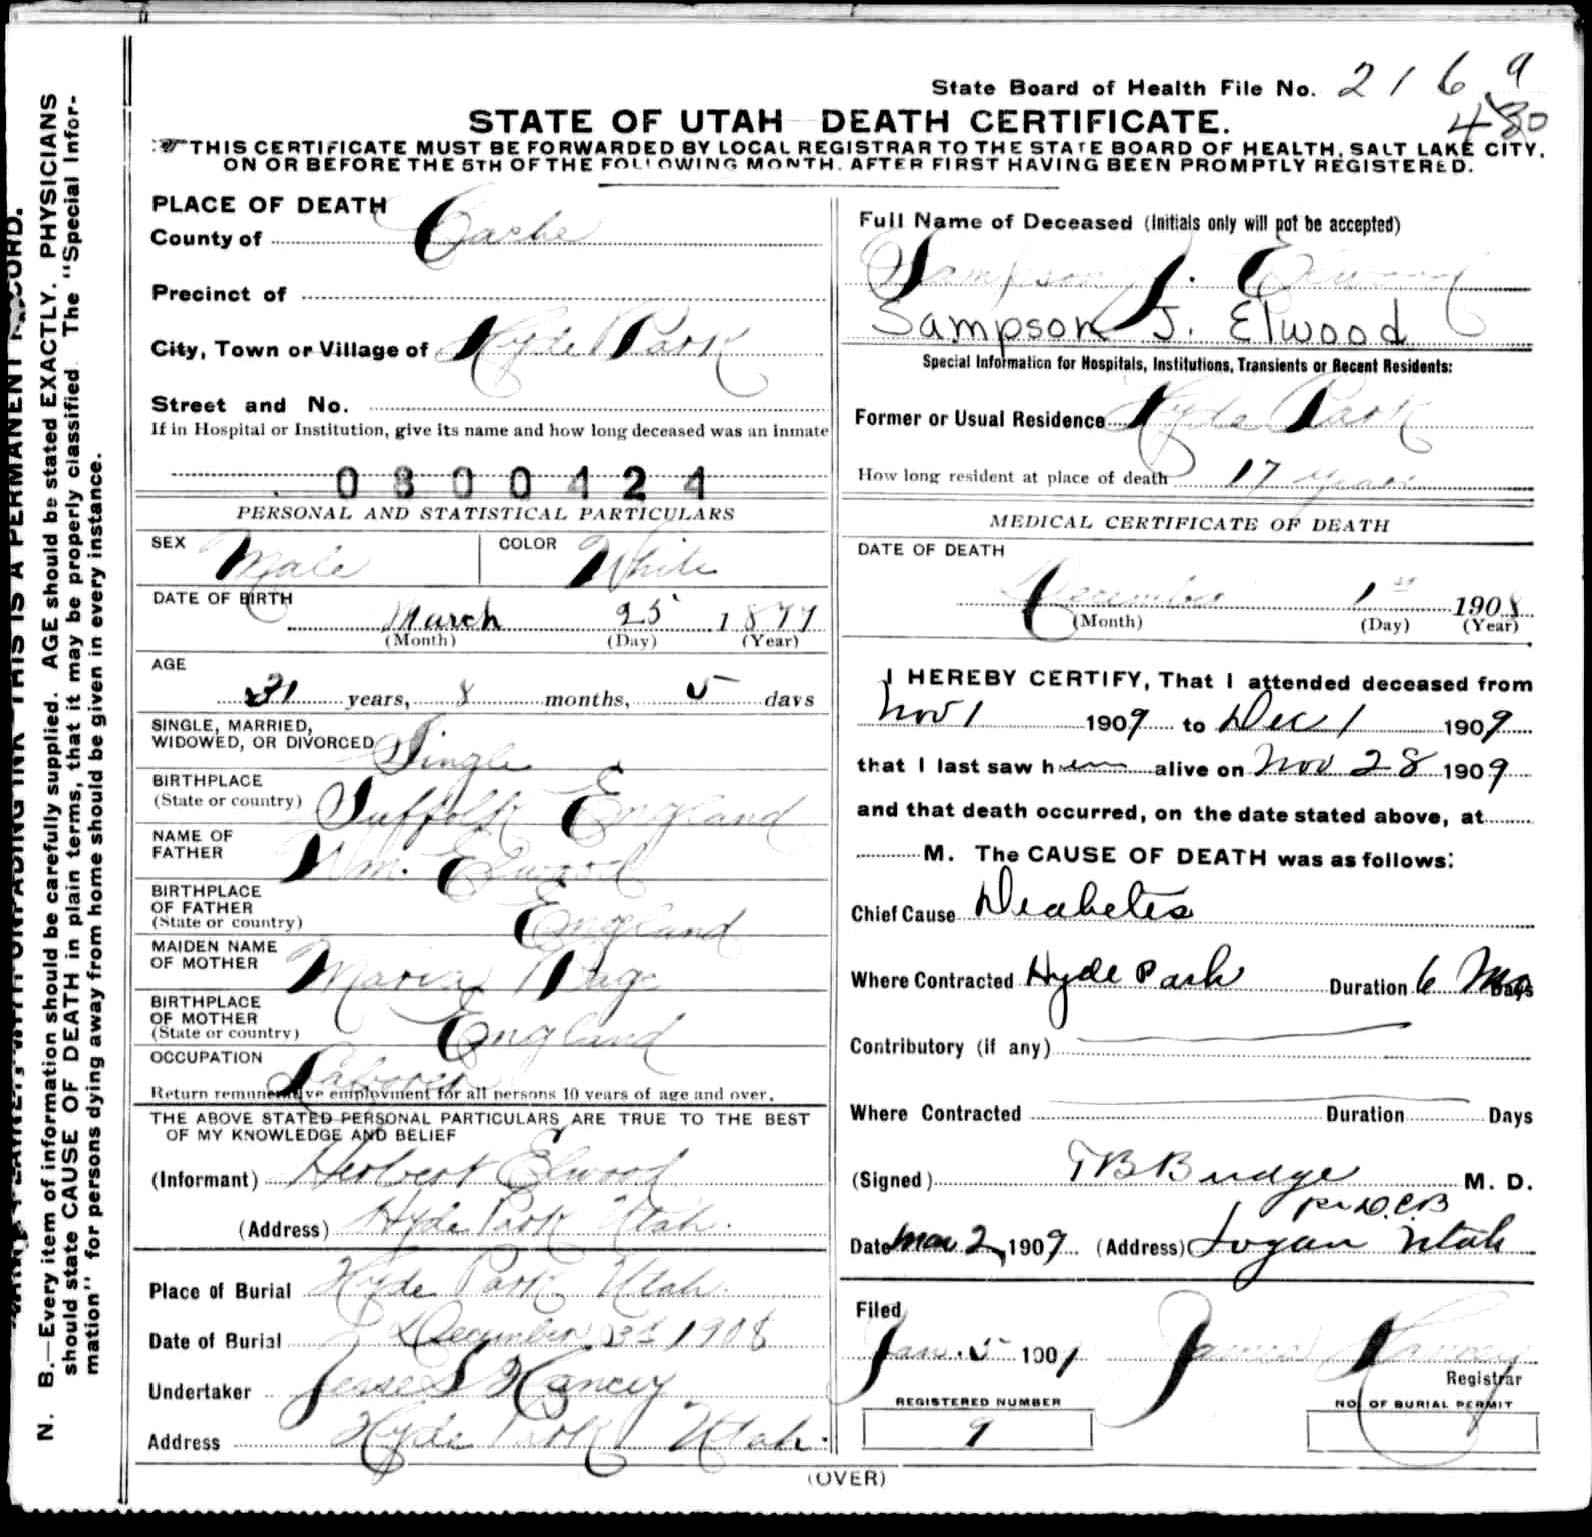 State Board of Health File No. 2169
480
STATE OF UTAH DEATH CERTIFICATE.
THIS CERTIFICATE MUST BE FORWARDED BY LOCAL REGISTRAR TO THE STATE BOARD OF HEALTH, SALT LAKE CITY,
ON OR BEFORE THE 5TH OF THE FOLLOWING MONTH, AFTER FIRST HAVING BEEN PROMPTLY REGISTERED.
PLACE OF DEATH
County of Cache
Precinct of
City, Town or Village of Hyde Park
Street and No.
If in Hospital or Institution, give its name and how long deceased was an inmate
0300424
PERSONAL AND STATISTICAL PARTICULARS
SEX Male COLOR White
DATE OF BIRTH
March 25 1877
(Month) (Day) (Year)
AGE
31 years, 8 months, 5 days
SINGLE, MARRIED,
WIDOWED, OR DIVORCED Single
BIRTHPLACE
(State or country) Suffolk England
NAME OF
FATHER Wm. Elwood
BIRTHPLACE
OF FATHER
(State or country) England
MAIDEN NAME
OF MOTHER Maria Page
BIRTHPLACE
OF MOTHER
(State or country) England
OCCUPATION Laborer
Return remunerative employment for all persons 10 years of age and over.
THE ABOVE STATED PERSONAL PARTICULARS ARE TRUE TO THE BEST
OF MY KNOWLEDGE AND BELIEF
(Informant) Herbert Elwood
(Address) Hyde Park Utah.
Place of Burial Hyde Park Utah.
Date of Burial December 3d 1908
Undertaker Jesse S Hancey
Address Hyde Park Utah.
Full Name of Deceased (Initials only will not be accepted)
Sampson J. Elwood
Sampson J. Elwood
Special Information for Hospitals, Institutions, Transients or Recent Residents:
Former or Usual Residence Hyde Park
How long resident at place of death 17 years
MEDICAL CERTIFICATE OF DEATH
DATE OF DEATH
December 1st 1908
(Month) (Day) (Year)
I HEREBY CERTIFY, That I attended deceased from
Nov 1 1909 to Dec 1 1909
that I last saw him alive on Nov 28 1909
and that death occurred, on the date stated above, at
M. The CAUSE OF DEATH was as follows:
Chief Cause Diabetes
Where Contracted Hyde Park Duration 6 Mos Days
Contributory (if any)
Where Contracted Duration Days
(Signed) T B Budge M. D.
per D.C.B
Date Mar 2 1909 (Address) Logan Utah
Filed
Jan. 5 1909 James Hancey
Registrar
REGISTERED NUMBER
9
NO. OF BURIAL PERMIT
(OVER)
N. B.—Every item of information should be carefully supplied. AGE should be stated EXACTLY. PHYSICIANS
should state CAUSE OF DEATH in plain terms, that it may be properly classified. The "Special Infor-
mation" for persons dying away from home should be given in every instance.
WITH UNFADING INK—THIS IS A PERMANENT RECORD.